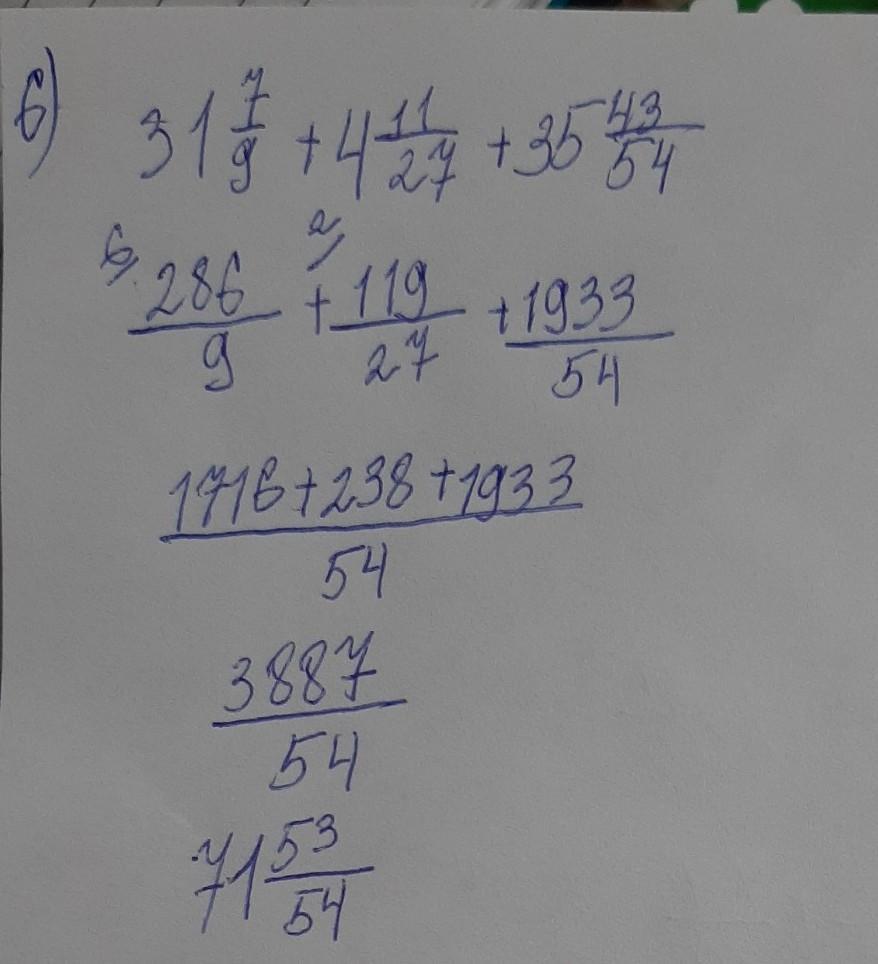 б) 31 7/9 + 4 11/27 + 35 43/54
6, 286/9 + 2, 119/27 + 1933/54
1716+238+1933/54
3887/54
71 53/54